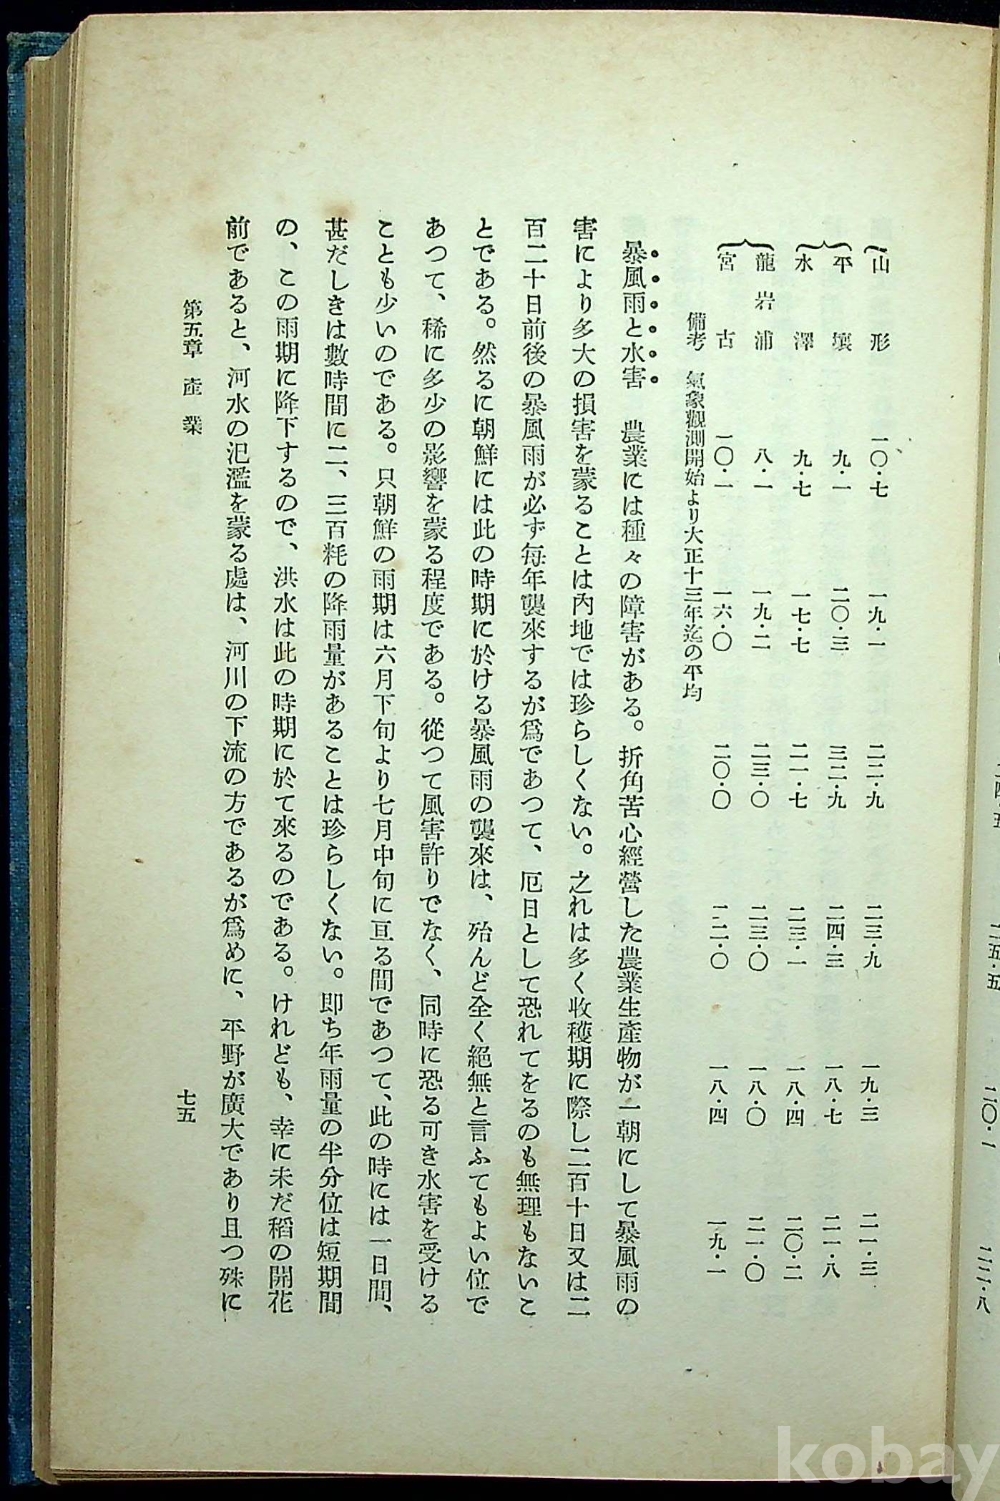 山形 一〇・七 一九・一 二二・九 二三・九 一九・三 二一・三
平壤 九・一 二〇・三 三二・九 二四・三 一八・七 二一・八
水澤 九・七 一七・七 二一・七 二三・一 一八・四 二〇・二
龍岩浦 八・一 一九・二 二三・〇 二三・〇 一八・〇 二一・〇
宮古 一〇・一 一六・〇 二〇・〇 二二・〇 一八・四 一九・一
備考 氣象觀測開始より大正十三年迄の平均
暴風雨と水害 農業には種々の障害がある。折角苦心經營した農業生產物が一朝にして暴風雨の
害により多大の損害を蒙ることは內地では珍らしくない。之れは多く收穫期に際し二百十日又は二
百二十日前後の暴風雨が必ず每年襲來するが爲であつて、厄日として恐れてをるのも無理もないこ
とである。然るに朝鮮には此の時期に於ける暴風雨の襲來は、殆んど全く絕無と言ふてもよい位で
あつて、稀に多少の影響を蒙る程度である。從つて風害許りでなく、同時に恐る可き水害を受ける
ことも少いのである。只朝鮮の雨期は六月下旬より七月中旬に亘る間であつて、此の時には一日間、
甚だしきは數時間に二、三百粍の降雨量があることは珍らしくない。卽ち年雨量の半分位は短期間
の、この雨期に降下するので、洪水は此の時期に於て來るのである。けれども、幸に未だ稻の開花
前であると、河水の氾濫を蒙る處は、河川の下流の方であるが爲めに、平野が廣大であり且つ殊に
第五章 產業
七五
二五・五
二〇・一
二二・八
kobay